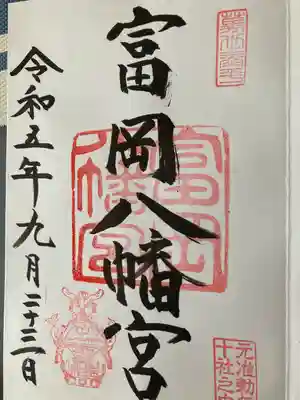 富岡八幡宮
令和五年九月二十三日
富岡
八幡宮
元准勅
十社之内